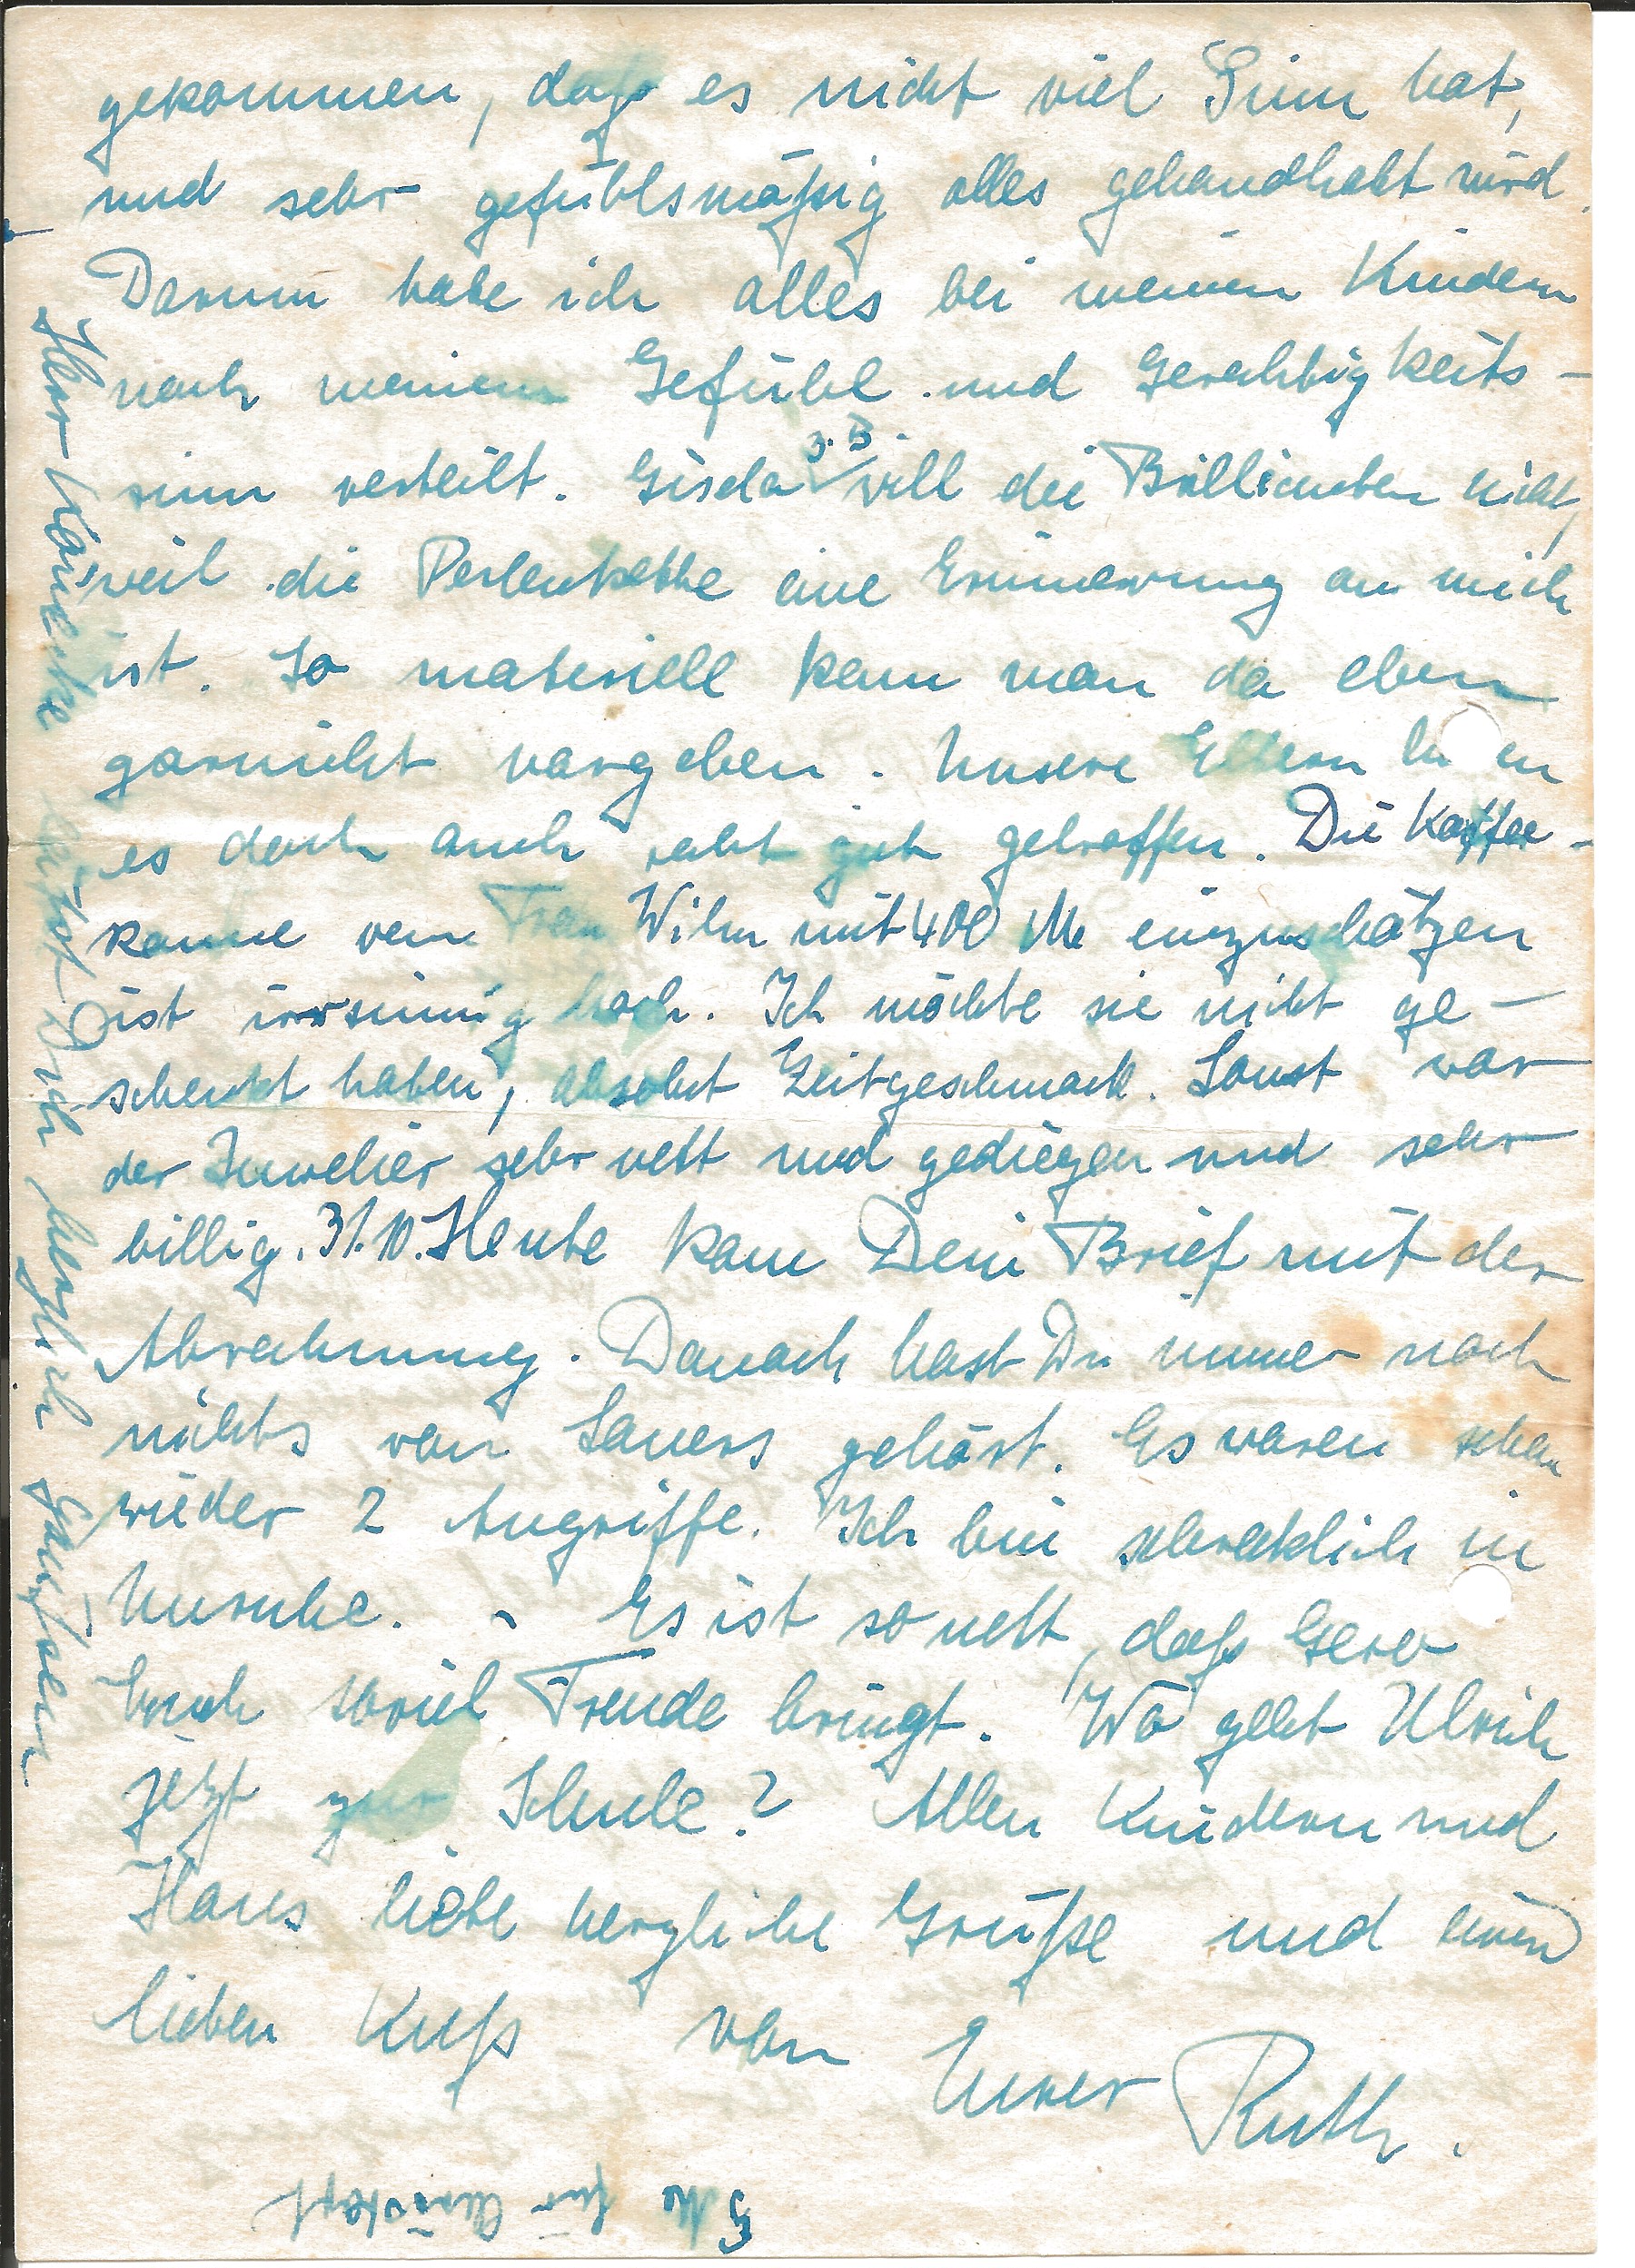 gekommen, daß es nicht viel Sinn hat,
und sehr gefühlsmäßig alles gehandhabt wird.
Darum habe ich alles bei meinen Kindern
nach meinem Gefühl und Gerechtigkeits-
sinn verteilt. Gisela z.B. will die Brillianten nicht,
weil die Perlenkette eine Erinnerung an mich
ist. So materiell kann man da eben
garnicht vorgehen. Unsere Eltern haben
es doch auch recht gut getroffen. Die Kaffee-
kanne von Frau Wilm mit 400 M einzuschätzen
ist irrsinnig hoch. Ich möchte sie nicht ge-
schenkt haben, absolut Zeitgeschmack. Sonst war
der Juwelier sehr nett und gediegen und sehr
billig. 31.10. Heute kam Dein Brief mit der
Abrechnung. Danach hast Du immer noch
nichts von Sauers gehört. Es waren schon
wieder 2 Angriffe. Ich bin schrecklich in
Unruhe. - Es ist so nett, daß Gero
Euch soviel Freude bringt. Wo geht Ulrich
jetzt zur Schule? Allen Kindern und
Hans liebe herzliche Grüße und einen
lieben Kuß von Eurer Ruth.
Herr läßt Dich herzlich grüßen
5 M für